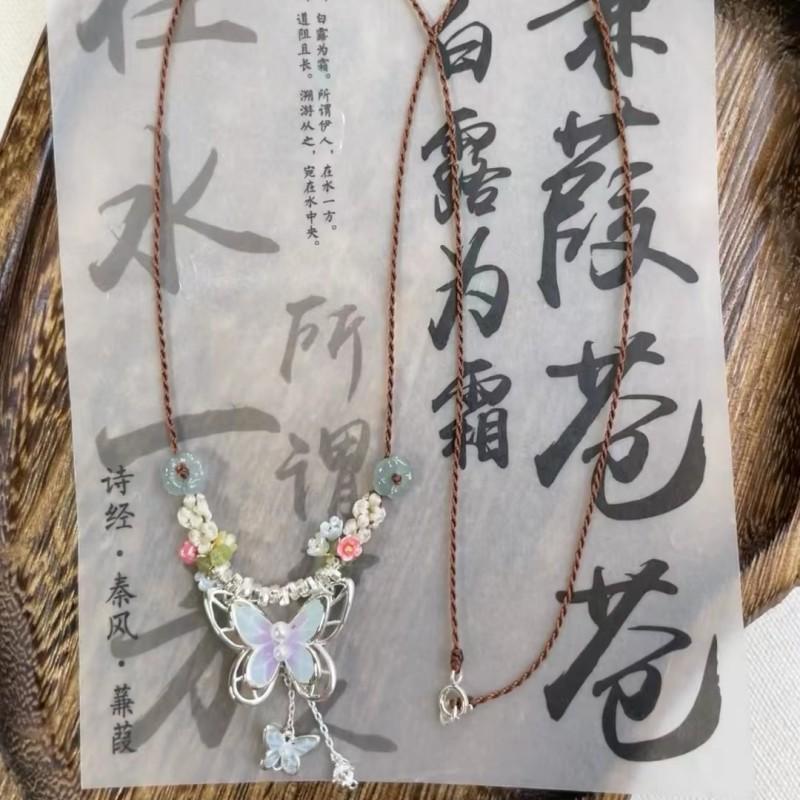 蒹葭苍苍
白露为霜
所谓
白露为霜。所谓伊人，在水一方。
道阻且长。溯游从之，宛在水中央。
在水一方
诗经·秦风·蒹葭